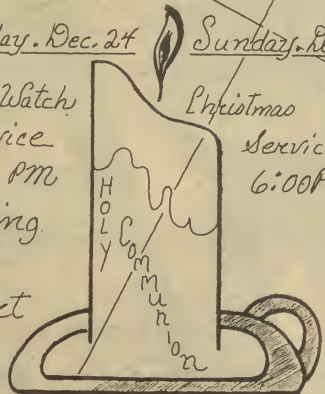 ay. Dec. 24
Watch
vice
PM
ing
et
Sunday. De
Christmas
Servic
6:00P
HOLY
Communion